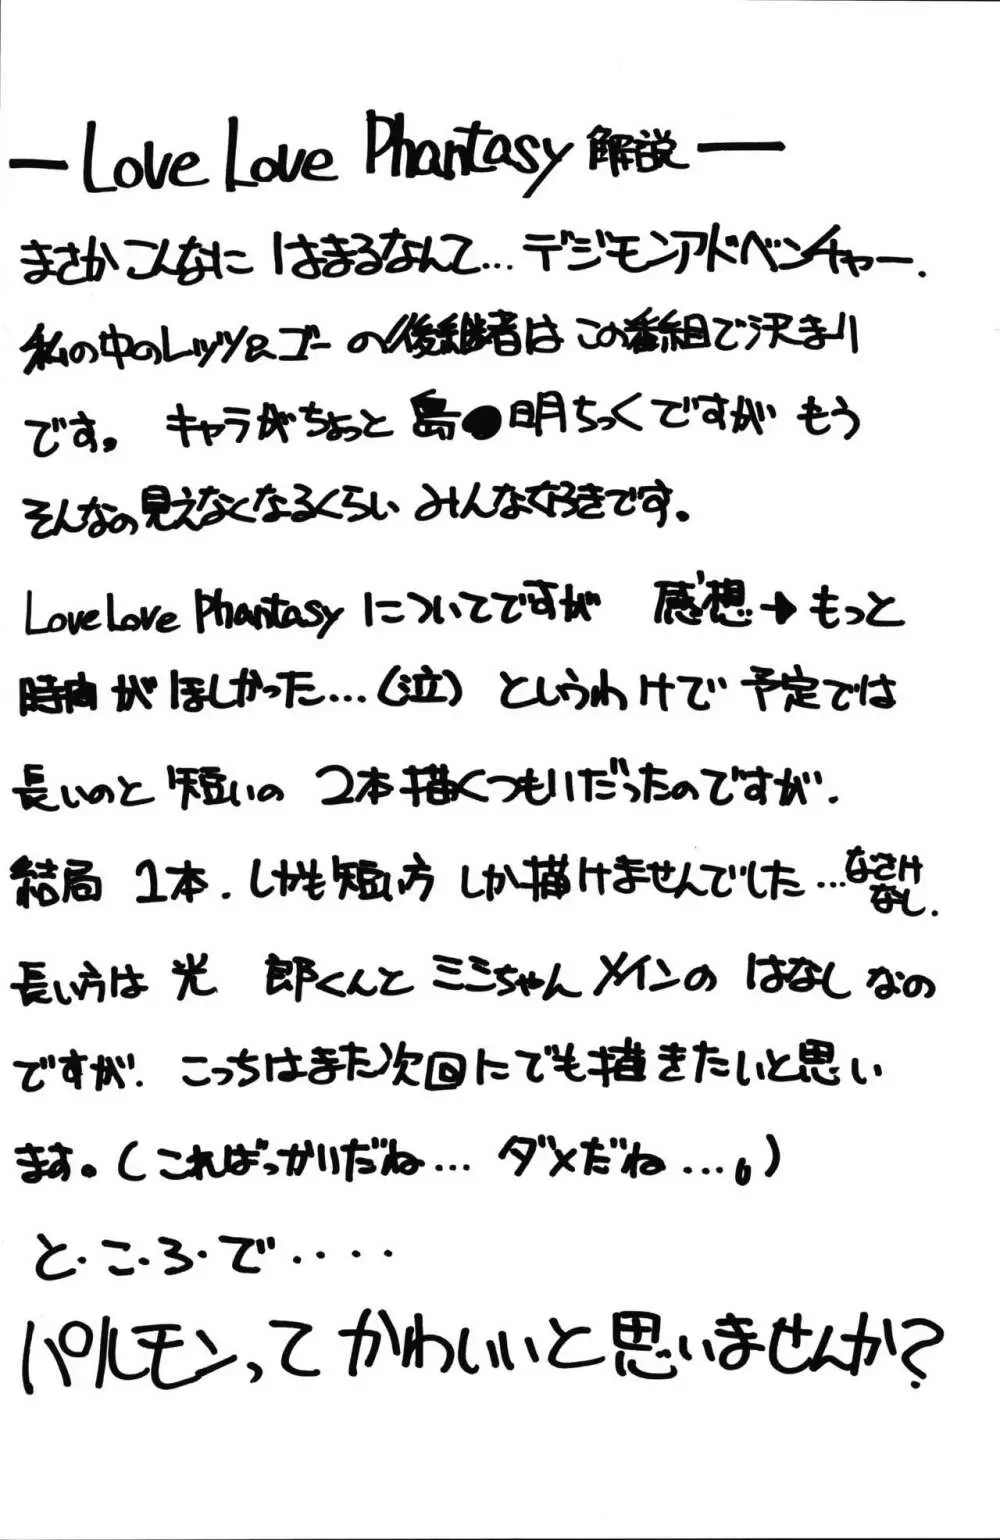 ーLove Love Phantasy 解説ー
まさかこんなに はまるなんて… デジモンアドベンチャー.
私の中のレッツ&ゴーの後継者はこの番組で決まり
です。 キャラがちょっと島●明ちっくですが もう
そんなの見えなくなるくらい みんな好きです。
LoveLove Phantasy についてですが 感想→もっと
時間がほしかった…(泣) というわけで 予定では
長いのと 短いの 2本描くつもりだったのですが.
結局 1本. しかも短い方 しか描けませんでした…なさけなし.
長い方は 光 郎くんと ミミちゃん メインの はなし なの
ですが. こっちはまた次回にでも描きたいと思い
ます。(こればっかりだね… ダメだね…。)
と・こ・ろ・で・・・・
パルモンって かわいいと思いませんか?